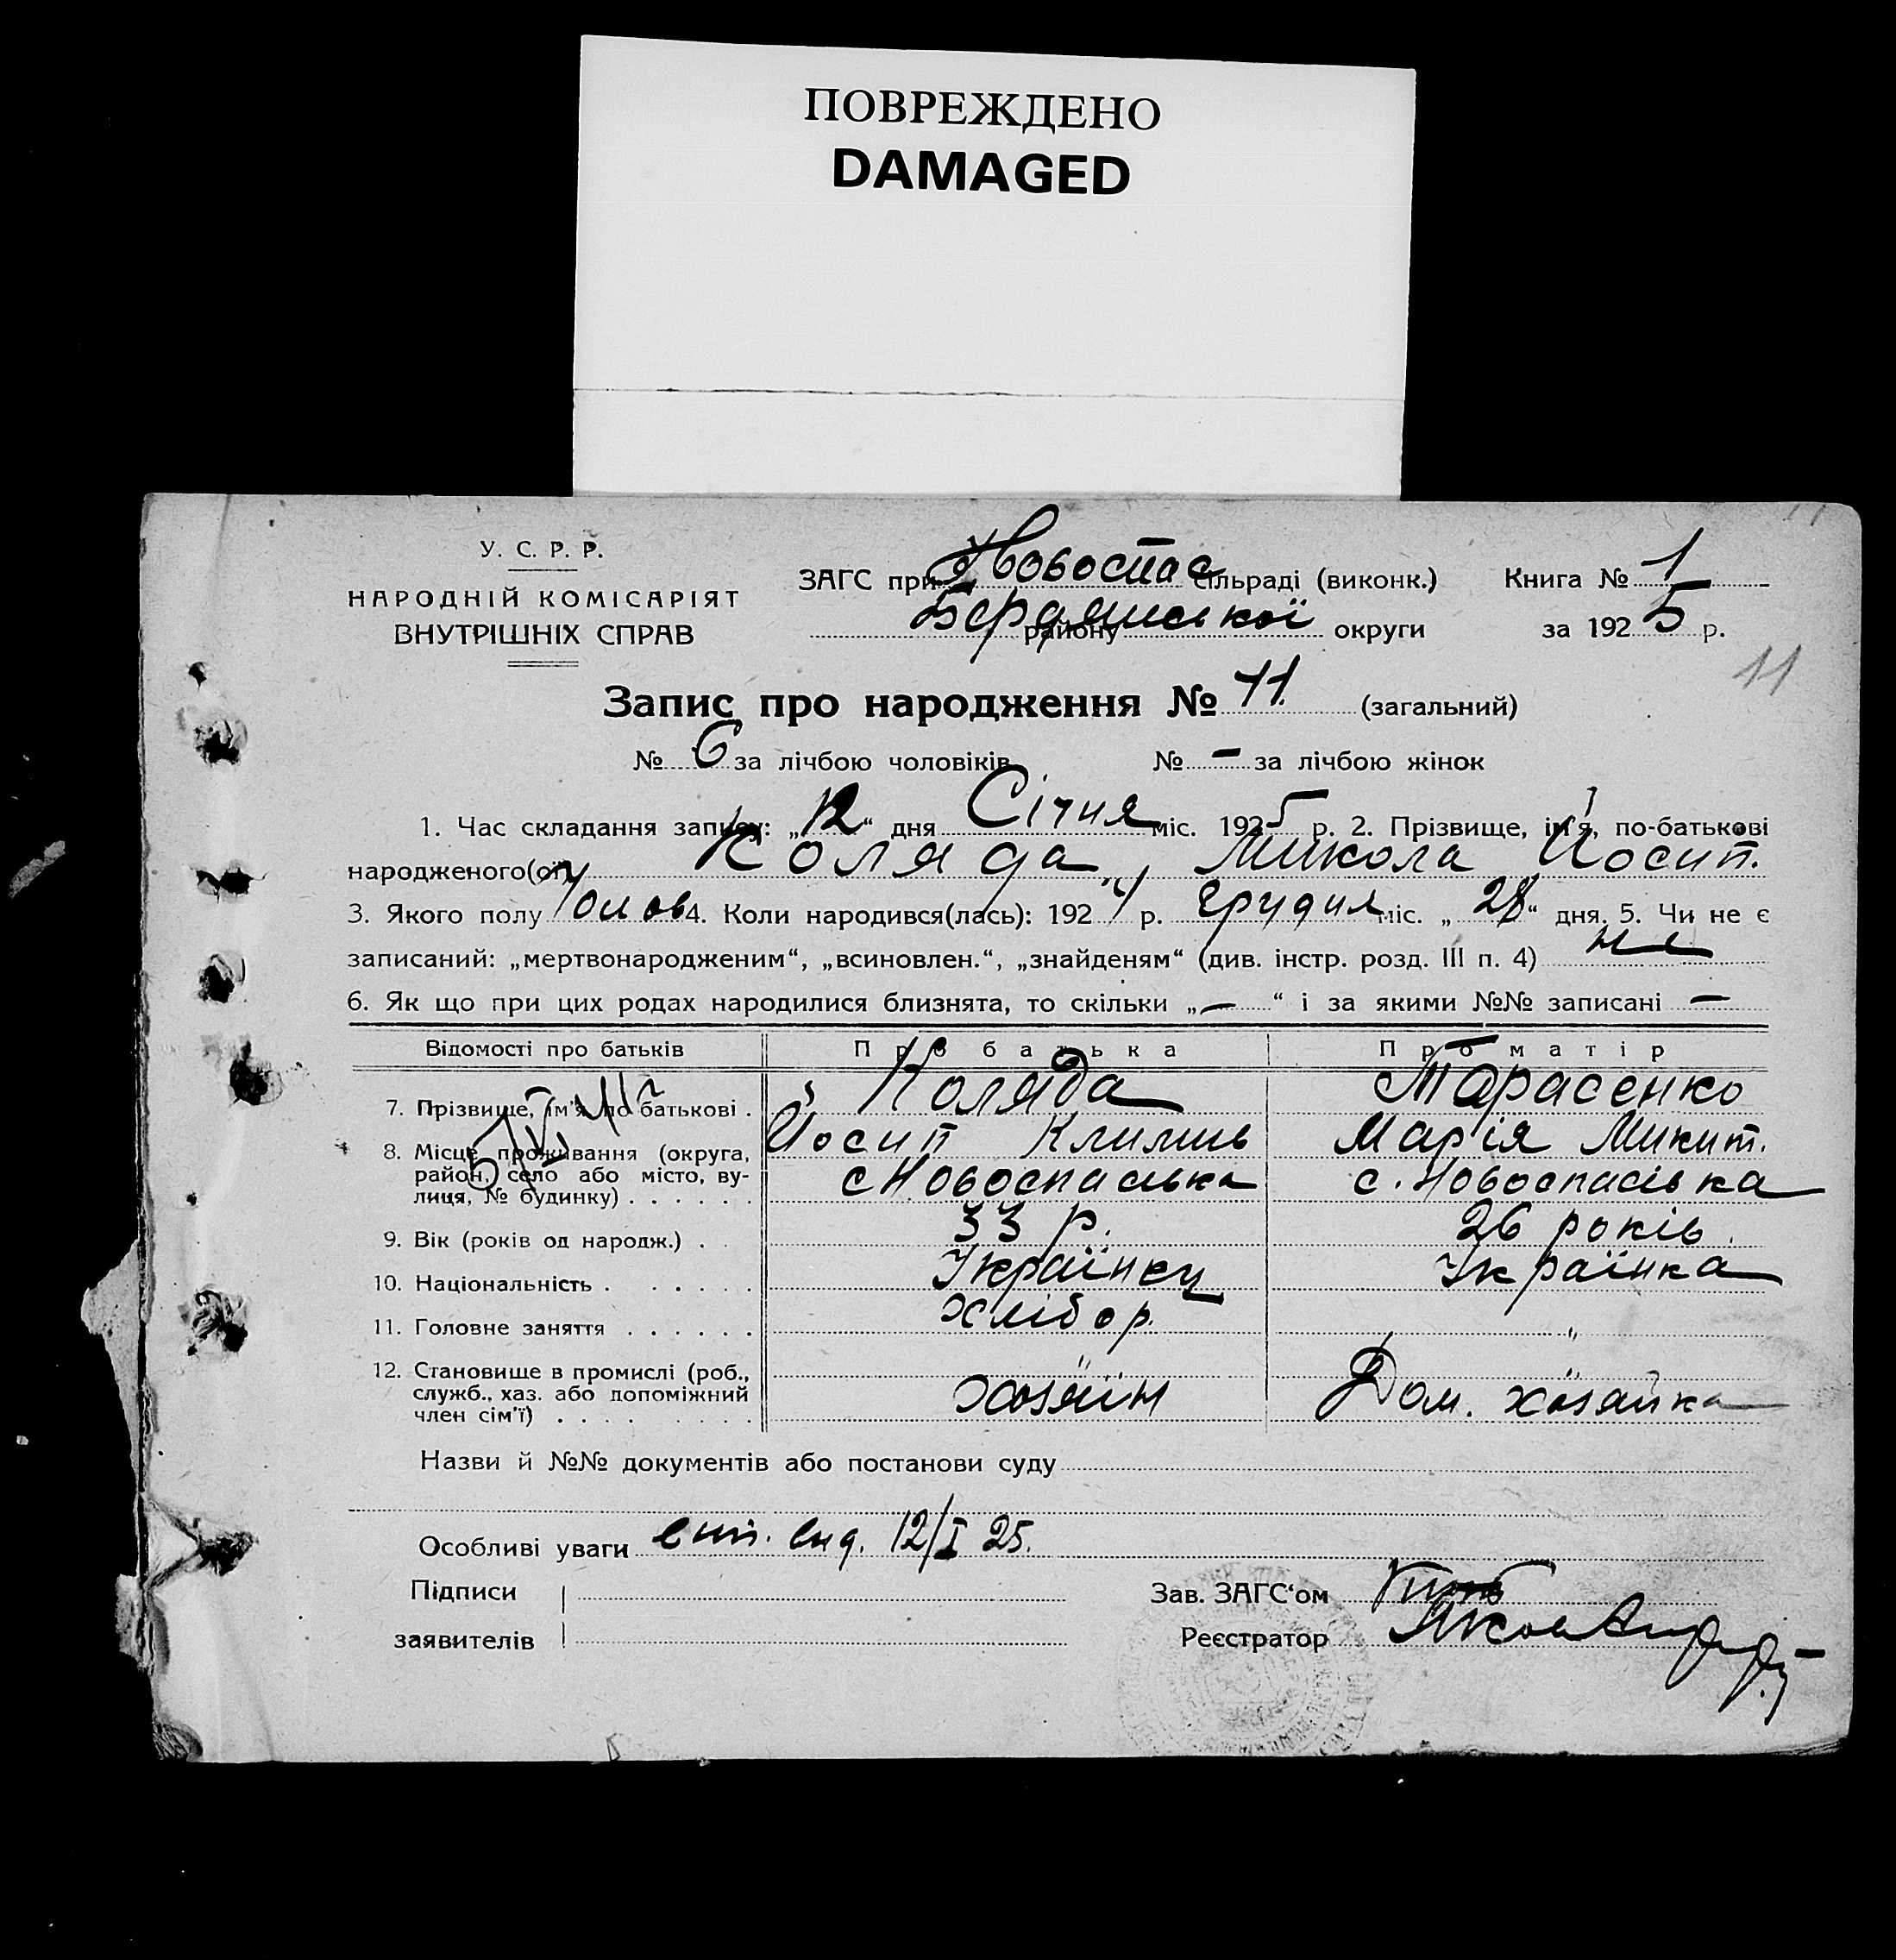 ПОВРЕЖДЕНО
DAMAGED
У. С. Р. Р.
НАРОДНІЙ КОМІСАРІЯТ
ВНУТРІШНІХ СПРАВ
ЗАГС при Новоспас сільраді (виконк.)
Книга № 1
Бердянської району округи
за 1925 р.
11
Запис про народження № 11. (загальний)
№ 6 за лічбою чоловіків № – за лічбою жінок
1. Час складання запису: „12“ дня Січня міс. 1925 р. 2. Прізвище, ім'я, по-батькові
народженого(ої) Коляда Микола Йосип.
3. Якого полу Чолов 4. Коли народився(лась): 1924 р. грудня міс. „28“ дня. 5. Чи не є
записаний: „мертвонародженим“, „всиновлен.“, „знайденям“ (див. інстр. розд. III п. 4) не
6. Як що при цих родах народилися близнята, то скільки „–“ і за якими №№ записані –
Відомості про батьків Про батька Про матір
7. Прізвище, ім'я по батькові . Коляда Тарасенко
Йосип Климив Марія Микит.
8. Місце проживання (округа,
район, село або місто, ву-
лиця, № будинку) . . . . . . с Новоспасівка с. Новоспасівка
9. Вік (років од народж.) . 33 р. 26 років.
10. Національність . . . . . . Українец Українка
11. Головне заняття . . . . . . хлібор. "
12. Становище в промислі (роб.,
служб., хаз. або допоміжний
член сім'ї) . . . . . . . . " хозяїн Дом. хозяйка
Назви й №№ документів або постанови суду
Особливі уваги вип. вид. 12/I 25.
Підписи
заявителів
Зав. ЗАГС‘ом
Реєстратор